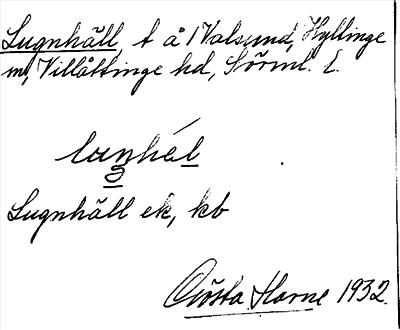 Lugnhäll, t å 1 Valsund, Hyllinge
m, Villåttinge hd, Sörml. l.
luŋnhél
Lugnhäll ek, kb
Gösta Harne 1932.